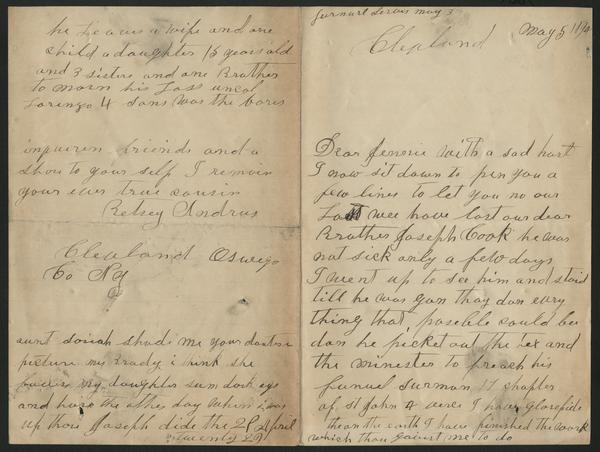 may 3
Clevland May 5
Dear Jennie with a sad hart
I now sit down to pin you a
few lines to let you no our
Lost wee have lost our dear
Brother Joseph Cook he was
not sick only a few days
I went up to see him and staid
till he was gon thay don evry
thing that posible could be
don he picket out the tex and
the minester to preach his
funuel surman 17 chapter
of St John 4 verce I have glorefide
the on the earth I have finished the work
which thou gavist me to do
he Leaves a wife and one
child a daughter 15 years old
and 3 sisters and one Brother
to morn his Loss uncal
Lorenzo 4 sons was the bares
inquiren friends and a
shore to your self I remain
your ever true cousin
Betsey Andrus
Clevland Oswego
Co NY
aunt shod me your
picture my i think she
my daughter sum dark eys
and hare the other day when i was
up thare Joseph dide the 29 April
29